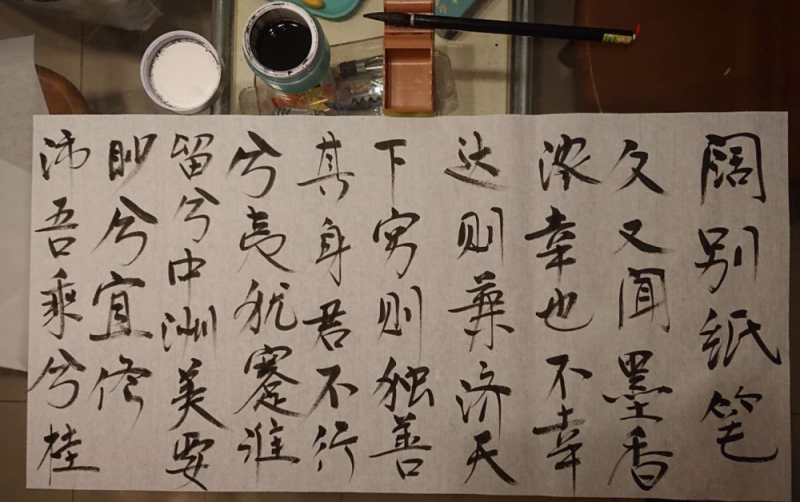 阔别纸笔
久又闻墨香
浓幸也不幸
达则兼济天
下穷则独善
其身君不行
兮夷犹蹇谁
留兮中洲美要
眇兮宜修
沛吾乘兮桂